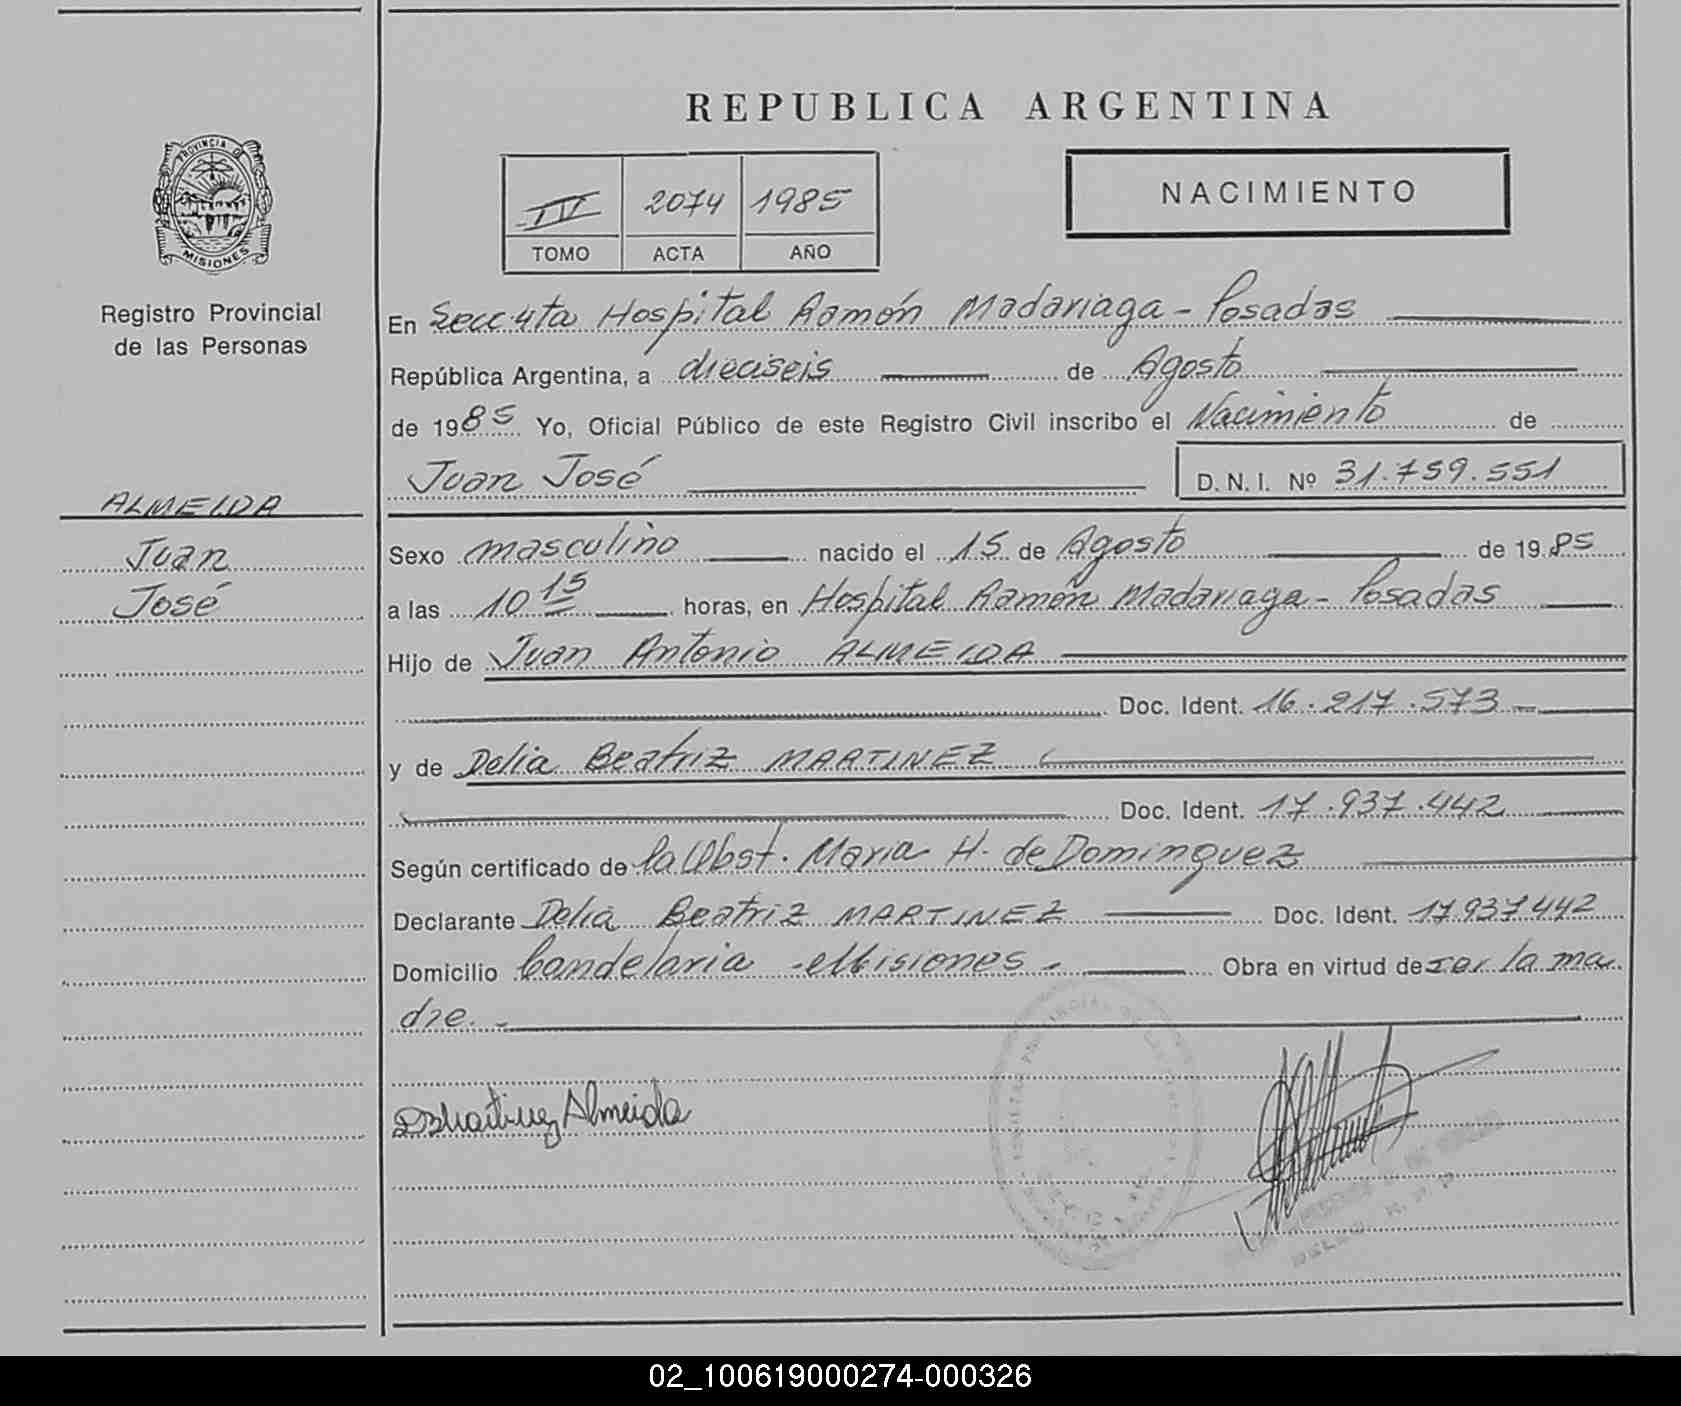 REPUBLICA ARGENTINA
PROVINCIA DE
MISIONES
Registro Provincial
de las Personas
IV 2074 1985
TOMO ACTA AÑO
NACIMIENTO
En Secc 4ta Hospital Ramón Madariaga - Posadas
República Argentina, a dieciseis de Agosto
de 1985 Yo, Oficial Público de este Registro Civil inscribo el Nacimiento de
Juan José D.N.I. Nº 31.759.551
ALMEIDA
Juan
José
Sexo masculino nacido el 15 de Agosto de 1985
a las 10 15 horas, en Hospital Ramón Madariaga - Posadas
Hijo de Juan Antonio ALMEIDA
Doc. Ident. 16.217.573
y de Delia Beatriz MARTINEZ
Doc. Ident. 17.937.442
Según certificado de la Obst. Maria H. de Dominguez
Declarante Delia Beatriz MARTINEZ Doc. Ident. 17937442
Domicilio Candelaria - Misiones - Obra en virtud de ser la ma
dre. -
DBMartinez Almeida
02_100619000274-000326